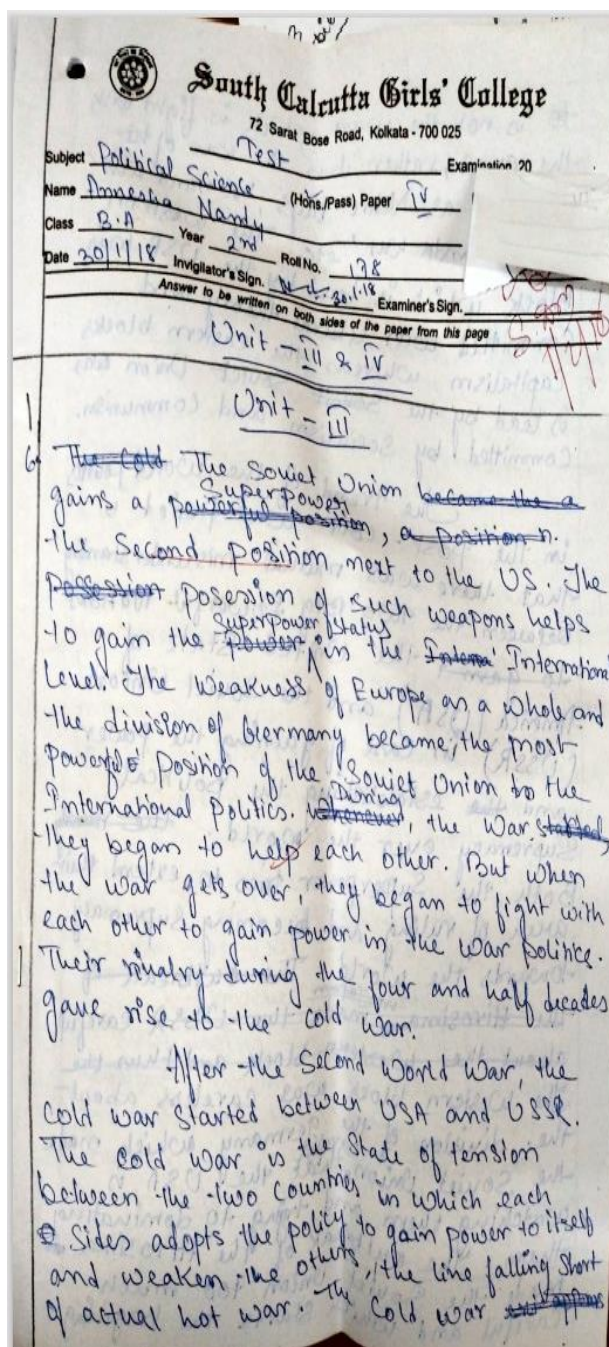 South Calcutta Girls' College
72 Sarat Bose Road, Kolkata - 700 025
Test Examination 20
Subject Political Science (Hons./Pass) Paper IV
Name Annesha Nandy
Class B.A Year 2nd Roll No. 178
Date 30/1/18 Invigilator's Sign. 30.1.18 Examiner's Sign.
Answer to be written on both sides of the paper from this page
Unit - III & IV
Unit - III
6. The Cold The Soviet Union became the a
gains a powerful position Superpower, a position n.
the Second position next to the US. The
possession posession of such weapons helps
to gain the Power Superpower status in the Interna International
Level. The weakness of Europe as a whole and
the division of Germany became, the most
powerful position of the Soviet Union to the
International Politics. Whenever During, the war started,
they began to help each other. But when
the war gets over, they began to fight with
each other to gain power in the war politics.
Their rivalry during the four and half decades
gave rise to the cold war.
After the Second World War, the
cold war started between USA and USSR.
The cold war is the State of tension
between the two countries in which each
Sides adopts the policy to gain power to itself
and weaken the others, the line falling short
of actual hot war. The Cold war